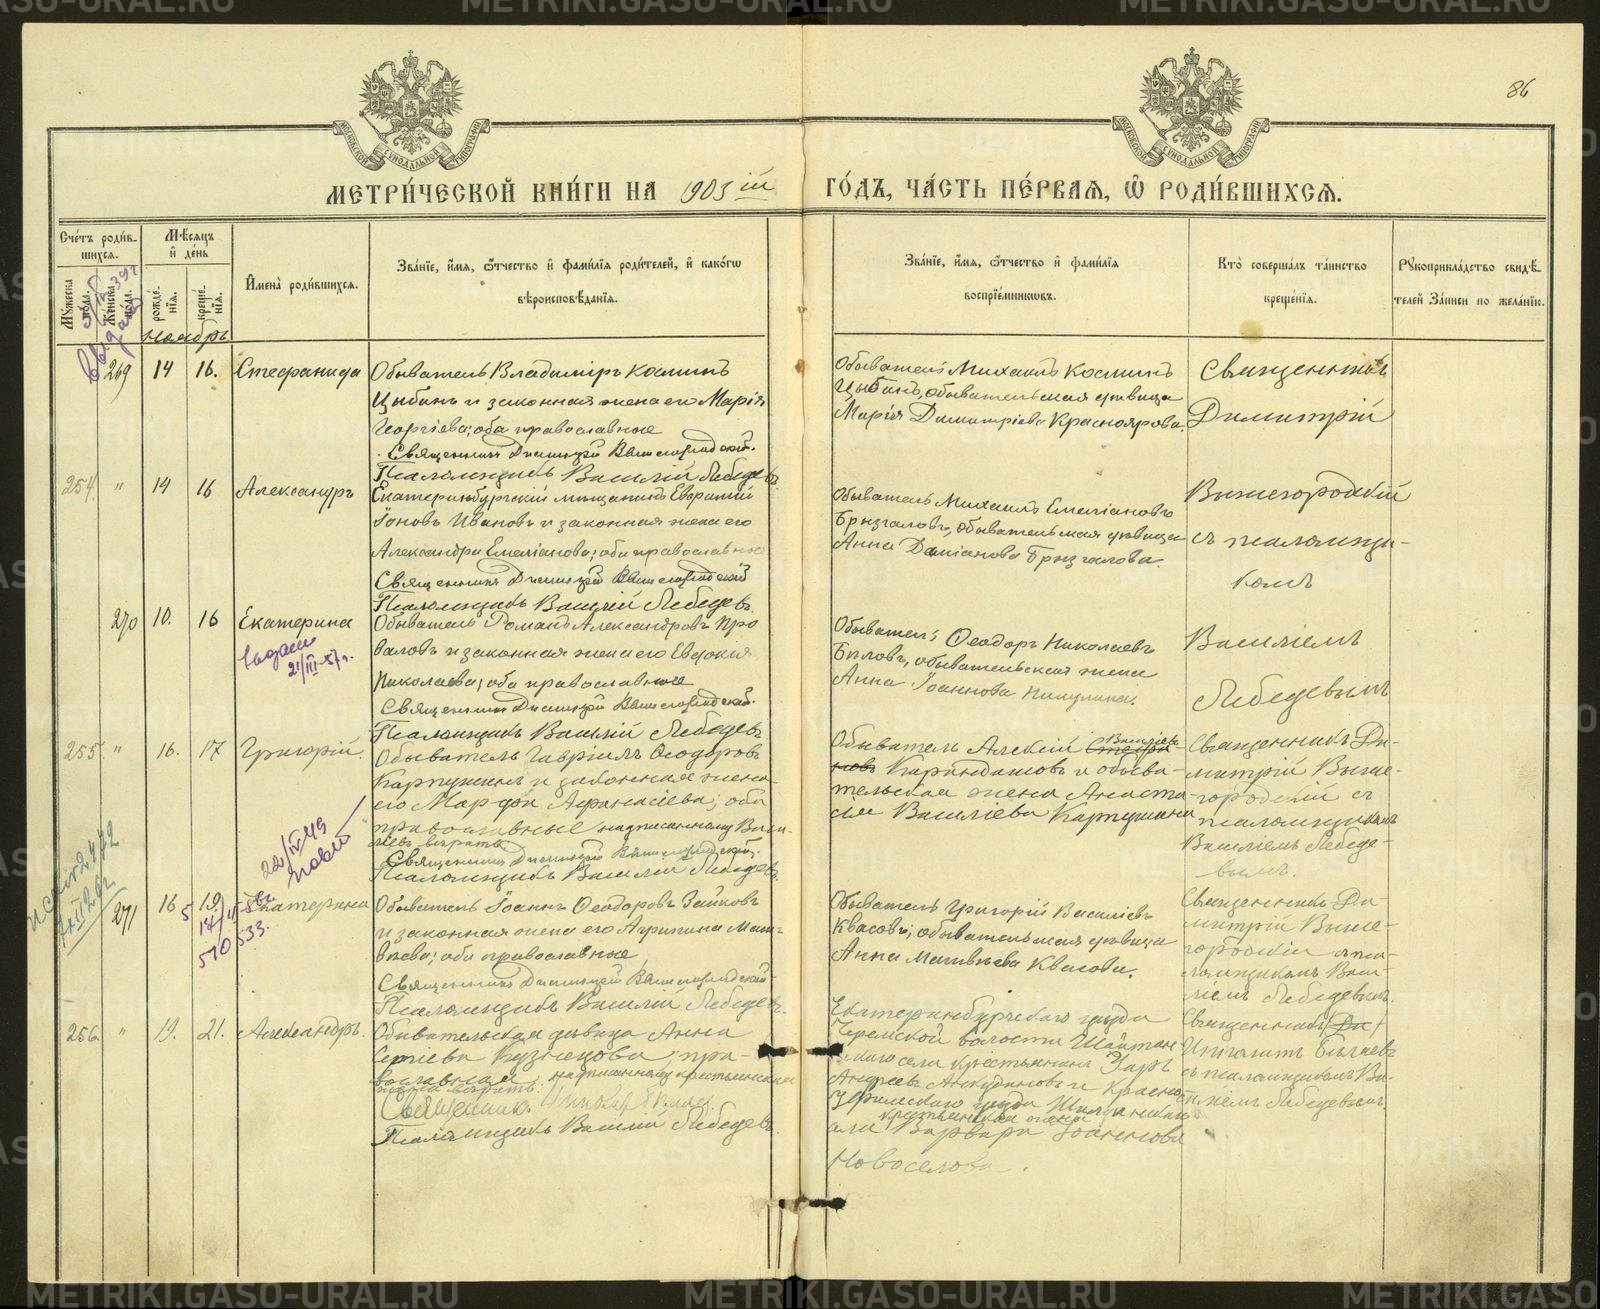 86
МОСКОВСКОЙ СѴНОДАЛЬНОЙ ТИПОГРАФІИ
МОСКОВСКОЙ СѴНОДАЛЬНОЙ ТИПОГРАФІИ
МЕТРИ́ЧЕСКОЙ КНИ́ГИ НА 1903 ій ГО́ДЪ, ЧА́СТЬ ПЕ́РВАЯ, Ѡ҆ РОДИ́ВШИХСЯ.
Сче́тъ роди́в-
шихся.
Мꙋжеска пола.
Женска пола.
Мѣ́сяцъ
и҆ де́нь
рожде́-
нїѧ.
креще́-
нїѧ.
И҆мена̀ роди́вшихся.
Зва́нїе, и҆́мѧ, ѻ҆́тчество и҆ фами́лїѧ роди́телей, и҆ како́гѡ
вѣроисповѣ́данїѧ.
Зва́нїе, и҆́мѧ, ѻ҆́тчество и҆ фами́лїѧ
воспрїе́мникѡвъ.
Кто̀ соверша́лъ та́инство
креще́нїѧ.
Рꙋкоприкла́дство свидѣ́-
телей за́писи по жела́нїю.
Ноябрь
269 14 16. Стефанида
Обыватель Владиміръ Косминъ
Цыбинъ и законная жена его Марія
Георгіева; оба православные
Священникъ Димитрій Вышегородскій.
Псаломщикъ Василій Лебедевъ.
Обыватель Михаилъ Косминъ
Цыбинъ, обывательская девица
Марія Димитріева Красноярова.
Священникъ
Димитрій
254. " 14 16 Александръ
Екатеринбургскій мещанинъ Евфимій
Іоновъ Ивановъ и законная жена его
Александра Емеліанова; оба православные
Священникъ Димитрій Вышегородскій
Псаломщикъ Василій Лебедевъ.
Обыватель Михаилъ Емеліановъ
Брызгаловъ, обывательская девица
Анна Даміанова Брызгалова.
Вышегородскій
съ псаломщи-
комъ
270 10. 16 Екатерина
Выдано
21/III-57г.
Обыватель Романъ Александровъ Про
валовъ и законная жена его Евдокия
Николаева; оба православные
Священникъ Димитрій Вышегородскій.
Псаломщикъ Василій Лебедевъ
Обыватель Ѳеодоръ Николаевъ
Быловъ, обывательская жена
Анна Іоаннова
Василіемъ
Лебедевымъ
255. " 16. 17 Григорій.
22/IV-49
Обыватель Гавріилъ Ѳеодоровъ
Карпушинъ и законная жена
его Марфа Афанасіева; оба
православные надписанному Васи-
ліевъ верить
Священникъ Димитрій Вышегородскій.
Псаломщикъ Василій Лебедевъ.
Обыватель Алексій Васильевъ
Карандашовъ и обыва-
тельская жена Анаста-
сія Василіева Карпушина
Священникъ Ди-
митрій Выше-
городскій съ
псаломщикомъ
Василіемъ Лебеде-
вымъ.
271 16 19 Екатерина
510533.
Обыватель Іоаннъ Ѳеодоровъ Зайковъ
и законная жена его Агрипина Мат-
веева; оба православные
Священникъ Димитрій Вышегородскій
Псаломщикъ Василій Лебедевъ.
Обыватель Григорій Василіевъ
Квасовъ; обывательская девица
Анна Матвеева Квасова.
Священникъ Ди-
митрій Выше-
городскій съ пса-
ломщикомъ Васи-
ліемъ Лебедевымъ.
256. " 19. 21. Александръ.
Обывательская девица Анна
Сергіева Кузнецова; пра-
вославная надписанному крестьянская
жена верить.
Священникъ
Псаломщикъ Василій Лебедевъ
Екатеринбургскаго уезда
волости Шайтан-
скаго села крестьянинъ
Андреевъ и Красно-
уфимскаго уезда
крестьянская жена
Варвара Іоаннова
Новоселова.
Священникъ
Ипполитъ
съ псаломщикомъ Ва-
силіемъ Лебедевымъ.
METRIKI.GASO-URAL.RU